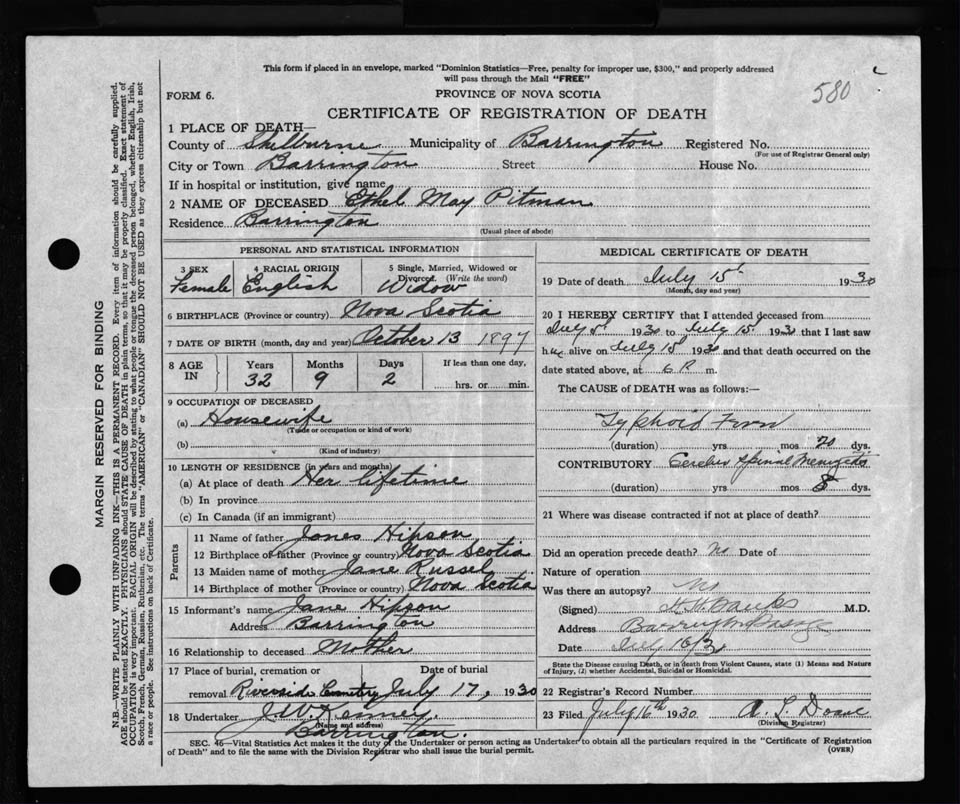 This form if placed in an envelope, marked "Dominion Statistics—Free, penalty for improper use, $300," and properly addressed
will pass through the Mail "FREE"
580
FORM 6.
PROVINCE OF NOVA SCOTIA
CERTIFICATE OF REGISTRATION OF DEATH
1 PLACE OF DEATH—
County of Shelburne Municipality of Barrington Registered No.
(For use of Registrar General only)
City or Town Barrington Street House No.
If in hospital or institution, give name
2 NAME OF DECEASED Ethel May Pitman
Residence Barrington
(Usual place of abode)
PERSONAL AND STATISTICAL INFORMATION
3 SEX Female
4 RACIAL ORIGIN English
5 Single, Married, Widowed or Divorced. (Write the word) Widow
6 BIRTHPLACE (Province or country) Nova Scotia
7 DATE OF BIRTH (month, day and year) October 13 1897
8 AGE IN
Years Months Days If less than one day,
32 9 2 hrs. or min.
9 OCCUPATION OF DECEASED
(a) Housewife
(Trade or occupation or kind of work)
(b)
(Kind of industry)
10 LENGTH OF RESIDENCE (in years and months)
(a) At place of death Her lifetime
(b) In province
(c) In Canada (if an immigrant)
Parents
11 Name of father James Hipson
12 Birthplace of father (Province or country) Nova Scotia
13 Maiden name of mother Jane Russel
14 Birthplace of mother (Province or country) Nova Scotia
15 Informant's name Jane Hipson
Address Barrington
16 Relationship to deceased Mother
17 Place of burial, cremation or Date of burial
removal Riverside Cemetry July 17, 1930
18 Undertaker J. W. Kenney.
(Name and address)
Barrington.
MEDICAL CERTIFICATE OF DEATH
19 Date of death July 15th 1930
(Month, day and year)
20 I HEREBY CERTIFY that I attended deceased from
July 1930 to July 15th 1930 that I last saw
her alive on July 15th 1930 and that death occurred on the
date stated above, at 6 P. m.
The CAUSE OF DEATH was as follows:—
Typhoid Fever
(duration) yrs mos 20 dys.
CONTRIBUTORY Cerebro Spinal Meningitis
(duration) yrs mos 8 dys.
21 Where was disease contracted if not at place of death?
Did an operation precede death? No Date of
Nature of operation
Was there an autopsy? No
(Signed) Banks M.D.
Address Barrington Passage
Date July 16/30
State the Disease causing Death, or in death from Violent Causes, state (1) Means and Nature
of Injury, (2) whether Accidental, Suicidal or Homicidal.
22 Registrar's Record Number
23 Filed July 16th 1930 A. L. Doane
(Division Registrar)
SEC. 46—Vital Statistics Act makes it the duty of the Undertaker or person acting as Undertaker to obtain all the particulars required in the "Certificate of Registration
of Death" and to file the same with the Division Registrar who shall issue the burial permit.
(OVER)
MARGIN RESERVED FOR BINDING
N.B.—WRITE PLAINLY WITH UNFADING INK—THIS IS A PERMANENT RECORD. Every item of information should be carefully supplied.
AGE should be stated EXACTLY. PHYSICIANS should STATE CAUSE OF DEATH in plain terms, so that it may be properly classified. Exact statement of
OCCUPATION is very important. RACIAL ORIGIN will be described by stating to what people or tongue the deceased person belonged, whether English, Irish,
Scotch, French, German, Russian, Ruthenian, etc. The terms "AMERICAN" or "CANADIAN" SHOULD NOT BE USED as they express citizenship but not
a race or people. See instructions on back of Certificate.